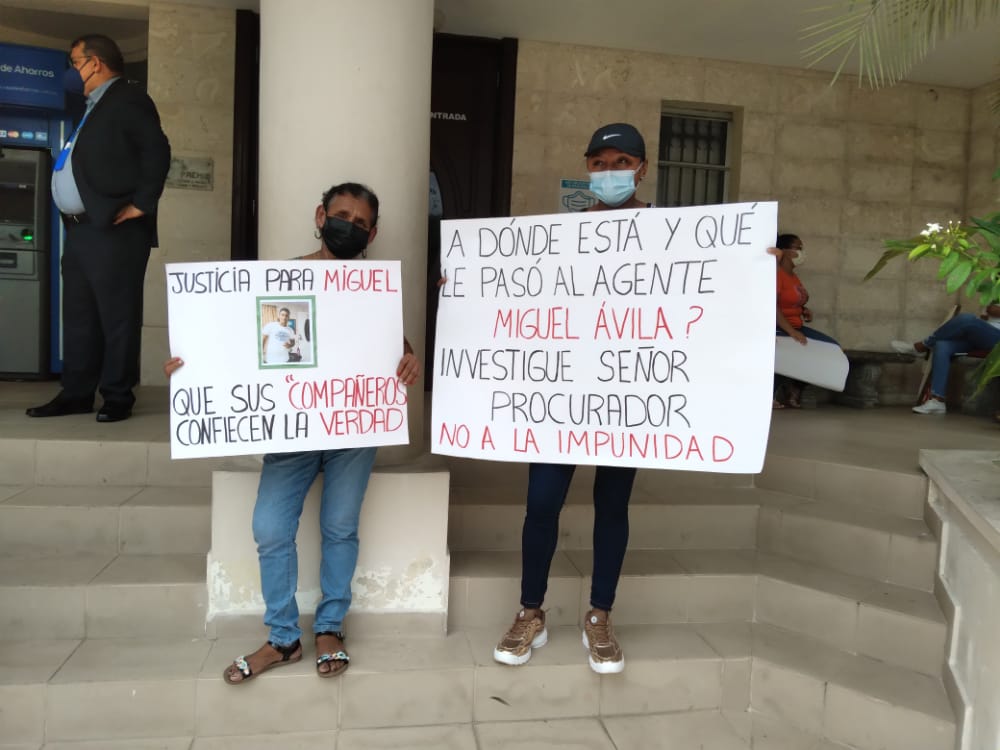 de Ahorros
ENTRADA
PREMIO
JUSTICIA PARA MIGUEL
QUE SUS "COMPAÑEROS
CONFIECEN LA VERDAD
A DÓNDE ESTÁ Y QUÉ
LE PASÓ AL AGENTE
MIGUEL ÁVILA?
INVESTIGUE SEÑOR
PROCURADOR
NO A LA IMPUNIDAD